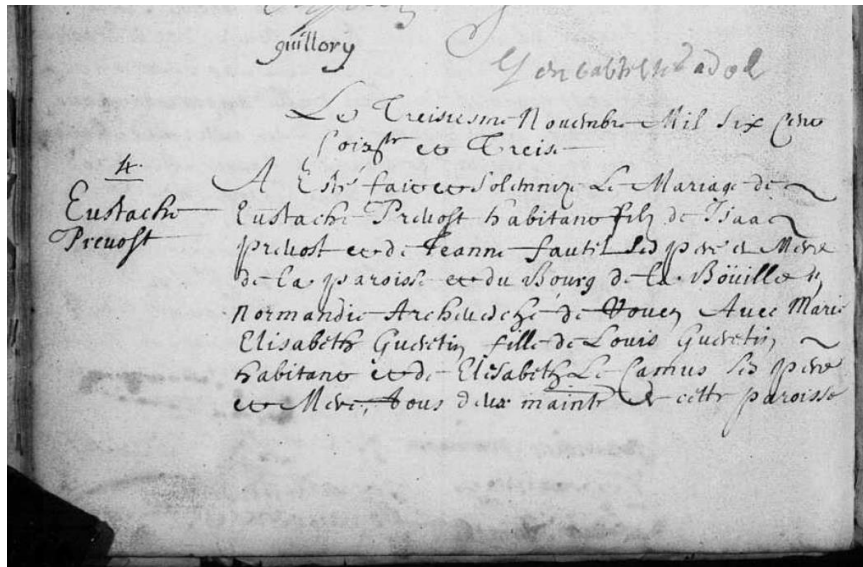 guillory
Le Treisiesme Novembre Mil Six Cens
Soix.te et Treise
4.
Eustache
Prevost
A Esté faict et Solemnize Le Mariage de
Eustache Prevost habitant filz de Isaac
prevost et de Jeanne fautil Ses pere et Mere
de la paroisse et du Bourg de la Boüille
Normandie Archevesché de Rouen Avec Marie
Elisabeth Guertin fille de Louis Guertin
habitant et de Elisabeth Le Camus Ses pere
et Mere, tous deux maint.t de cette paroisse